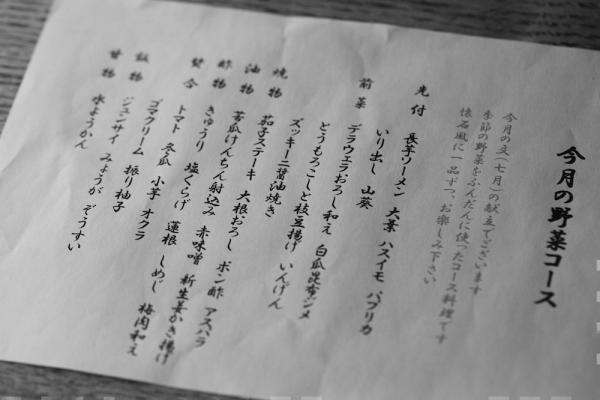 今月の野菜コース
今月の文(七月)の献立でございます
季節の野菜をふんだんに使ったコース料理です
懐石風に一品ずつ、お楽しみ下さい
先付 長芋ソーメン 大葉 ハスイモ パプリカ
いり出し 山葵
前菜 デラウェラおろし和え 白瓜昆布ジメ
とうもろこしと枝豆揚げ いんげん
ズッキーニ醤油焼き
焼物 茄子ステーキ 大根おろし ポン酢 アスパラ
油物 苦瓜けんちん射込み 赤味噌 新生姜かき揚げ
酢物 きゅうり 塩くらげ 蓮根 しめじ 梅肉和え
焚合 トマト 冬瓜 小芋 オクラ
ゴマクリーム 振り柚子
飯物 ジュンサイ みょうが ぞうすい
甘物 水ようかん